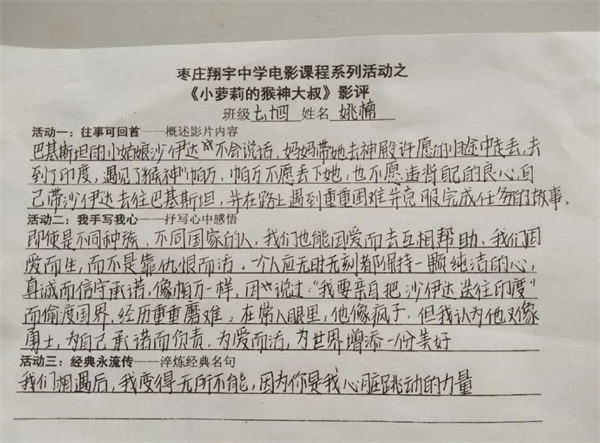 枣庄翔宇中学电影课程系列活动之
《小萝莉的猴神大叔》影评
班级 七十四 姓名 姚楠
活动一：往事可回首——概述影片内容
巴基斯坦的小姑娘沙伊达不会说话，妈妈带她去神殿许愿的归途中走丢，去
到了印度，遇见了"猴神"帕万，帕万不愿丢下她，也不愿违背自己的良心，自
己带沙伊达去往巴基斯坦，并在路上遇到重重困难并克服完成任务的故事。
活动二：我手写我心——抒写心中感悟
即使是不同种族、不同国家的人，我们也能因爱而去互相帮助，我们因
爱而生，而不是靠仇恨而活。一个人应无时无刻者都保持一颗纯洁的心，
真诚而信守承诺，像帕万一样，因说过："我要亲自把沙伊达送往印度"
而偷度国界，经历重重磨难，在常人眼里，他像疯子，但我认为他又像
勇士，为自己承诺而负责，为爱而活，为世界增添一份美好
活动三：经典永流传——淬炼经典名句
我们相遇后，我变得无所不能，因为你是我心脏跳动的力量